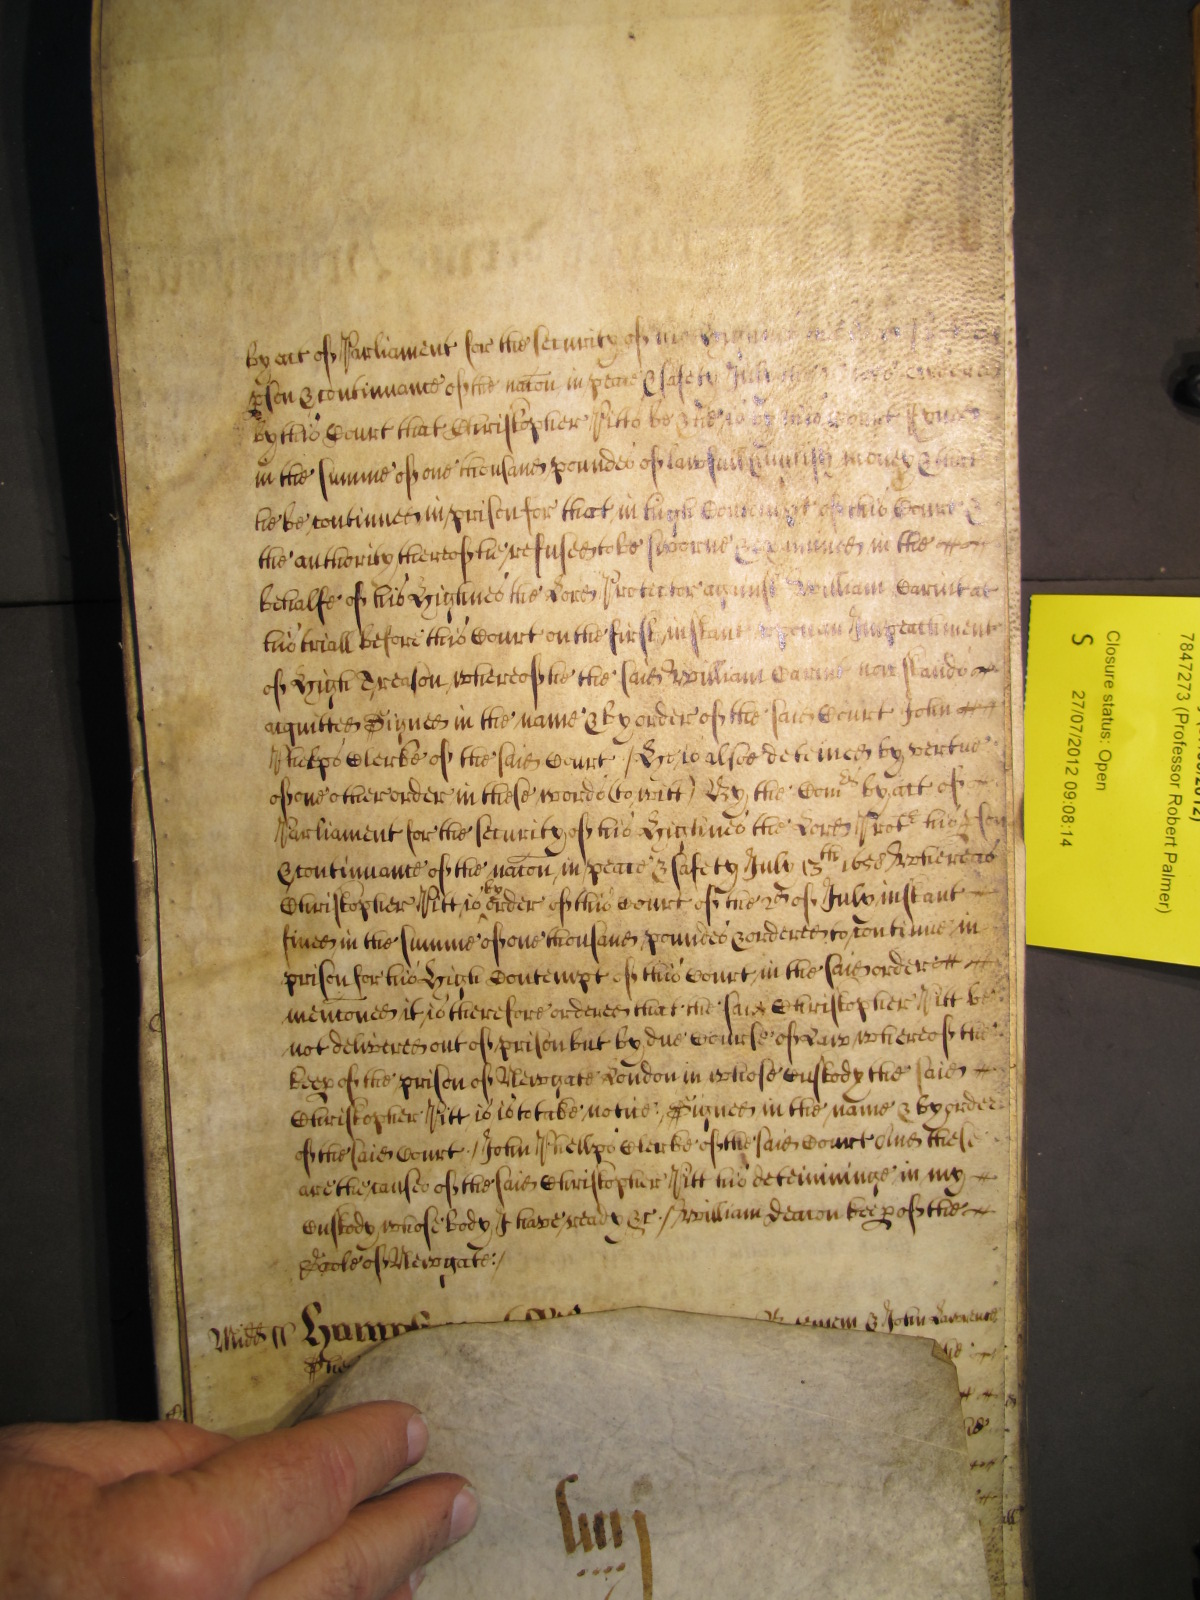 by act of Parliament for the security of his Highnes
pson & continuance of the nac̄on in peace & safety July
by this Court that Christopher Pitts be & he is by this Court fyned
in the summe of one thousand poundes of lawfull English money & that
he be continued in prison for that in high Contempt of this Court &
the authority thereof he refused to be sworne & examined in the
behalfe of his Highnes the Lord Protector against William Carint at
his triall before this Court on the first instant upon an Impeachment
of High Treason whereof he the said William Carint now stands
acquitted Signed in the name & by order of the said Court John
Phelps Clerke of the said Court / He is alsoe deteined by vertue
of one other order in these words (to witt) By the Comrs by act of
Parliament for the security of his Highnes the Lord Protr his pson
& continuance of the nac̄on in peace & safety July 13th 1658 Whereas
Christopher Pitt is by order of this Court of the of July instant
fined in the summe of one thousand poundes & ordered to continue in
prison for his High Contempt of this Court in the said order
menc̄oned it is therefore ordered that the said Christopher Pitt be
not delivered out of prison but by due Course of Law whereof the
keep of the prison of Newgate London in whose Custody the said
Christopher Pitt is is to take notice, Signed in the name & by order
of the said Court / John Phelps Clerke of the said Court And these
are the causes of the said Christopher Pitt his deteininge in my
Custody whose body I have ready &c / William Deacon keep of the
Gole of Newgate:/
Midd ss John Lawrence
liiij
7847273 (Professor Robert Palmer)
Closure status: Open
S 27/07/2012 09:08:14